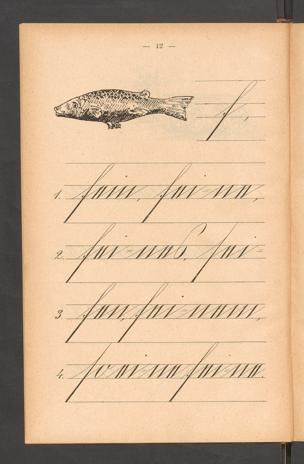 — 12 —
f,
1. fein, fei-ne,
2. fei-nes, fei-
3. fen, fei-nem,
4. so eine feine.